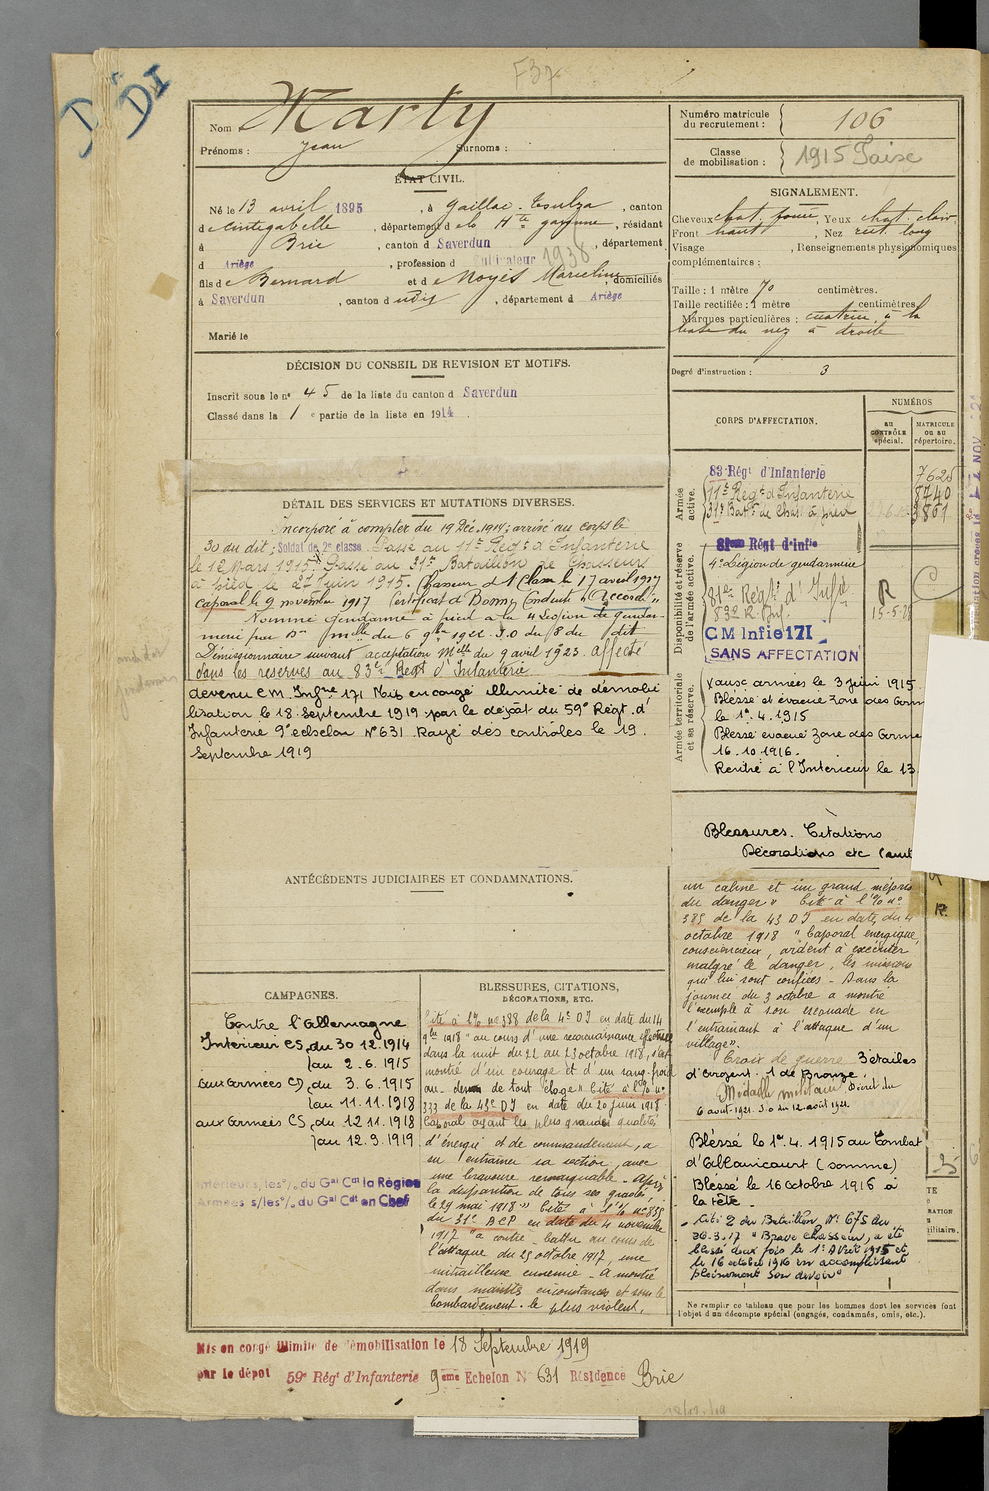 F37
D
DI
Nom Marty
Prénoms : Jean Surnoms :
ÉTAT CIVIL.
Né le 13 avril 1895, à Gaillac-Toulza, canton
de Cintegabelle, département de la Hte garonne, résidant
à Brie, canton d Saverdun, département
d Ariège, profession d Cultivateur 1938
fils de Bernard et de Noyés Marceline, domiciliés
à Saverdun, canton d udit, département d Ariège
Marié le
DÉCISION DU CONSEIL DE REVISION ET MOTIFS.
Inscrit sous le n° 45 de la liste du canton d Saverdun
Classé dans la 1 e partie de la liste en 1914.
DÉTAIL DES SERVICES ET MUTATIONS DIVERSES.
Incorporé à compter du 19 Déc. 1914; arrivé au corps le
30 du dit; Soldat de 2e classe. Passé au 11e Régt d'Infanterie
le 12 Mars 1915. Passé au 31e Bataillon de Chasseurs
à pied le 27 Juin 1915. Chasseur de 1 Classe le 17 avril 1917
Caporal le 9 novembre 1917 Certificat de Bonne Conduite "Accordé"
Nommé gendarme à pied à la 4 Légion de gendar-
merie par Don mlle du 6 9bre 1922 J.O du 8 du dit
Démissionnaire suivant acceptation Mlle du 9 avril 1923. affecté
dans les réserves au 83e Regt d'Infanterie
devenu C M. Infrie 171 Mis en congé illimité de démobi
lisation le 18 Septembre 1919 par le dépôt du 59e Régt. d'
Infanterie 9e echelon N° 631. Rayé des contrôles le 19.
Septembre 1919
ANTÉCÉDENTS JUDICIAIRES ET CONDAMNATIONS.
CAMPAGNES.
Contre l'Allemagne
Intérieur CS, du 30 12.1914
au 2.6.1915
aux armées CD, du 3.6.1915
au 11.11.1918
aux armées CS, du 12 11.1918
au 12.9.1919
Intérieur s/les °/. du Gal Cdt la Région
Armées s/les °/. du Gal Cdt en Chef
BLESSURES, CITATIONS,
DÉCORATIONS, ETC.
Cité à l'% n° 388 de la 4e DI en date du 14
9bre 1918 "au cours d'une reconnaissance effectuée
dans la nuit du 22 au 23 octobre 1918, s'est
montré d'un courage et d'un sang-froid
au-dessus de tout éloge" Cité à l'% n°
333 de la 43e DI en date du 20 juin 1918.
Caporal ayant les plus grandes qualités
d'énergie et de commandement, a
su entraîner sa section, avec
une bravoure remarquable. Après
la disparition de tous ses gradés,
le 29 mai 1918" Cité à l'% n° 855
du 31e BCP en date du 4 novembre
1917 "a contre-battu au cours de
l'attaque du 23 octobre 1917, une
mitrailleuse ennemie. A montré
dans maintes circonstances et sous le
bombardement le plus violent,
Mis en congé illimité de démobilisation le 18 Septembre 1919
par le dépôt 59e Régt d'Infanterie 9eme Echelon N° 631 Résidence Brie
Numéro matricule
du recrutement : 106
Classe
de mobilisation : 1915
SIGNALEMENT.
Cheveux chat. foncé, Yeux chat. clair
Front haut, Nez rect. long
Visage , Renseignements physionomiques
complémentaires :
Taille : 1 mètre 70 centimètres.
Taille rectifiée : 1 mètre centimètres.
Marques particulières : cicatrice à la
base du nez à droite
Degré d'instruction : 3
CORPS D'AFFECTATION.
NUMÉROS
au CONTRÔLE spécial.
MATRICULE ou au répertoire.
Armée active.
83 Régt d'Infanterie 7625
11e Régt d'Infanterie 8740
31e Batn de Chass à pied 3801
Disponibilité et réserve de l'armée active.
81eme Régt d'Infie
4e Légion de gendarmerie
81e Régt d'Infie
83e R. Inf.
R
C
15-5-28
CM Infie 171
SANS AFFECTATION
Armée territoriale et sa réserve.
aux armées le 3 juin 1915
Blessé et évacué Zone des Corm
le 1er.4.1915
Blessé évacué Zone des Corme
16.10.1916.
Rentré à l'Intérieur le 13
Blessures. Citations
Décorations etc (suit
un calme et un grand mépris
du danger" Cité à l'% n°
385 de la 43 DI en date du 4
octobre 1918 "Caporal énergique,
consciencieux, ardent à exécuter
malgré le danger, les missions
qui lui sont confiées. Dans la
journée du 3 octobre a montré
l'exemple à son escouade en
l'entraînant à l'attaque d'un
village".
Croix de guerre 3 étoiles
d'argent. 1 de Bronze.
Médaille militaire Décret du
6 août 1921. J.O du 12 août 1921.
Blessé le 1er.4.1915 au Combat
d'Ablaincourt (Somme)
Blessé le 16 octobre 1916 à
la tête.
Cité O du Bataillon N° 675 du
30.3.17 "Brave chasseur, a été
blessé deux fois le 1er Avril 1915 et
le 16 octobre 1916 en accomplissant
pleinement son devoir"
Ne remplir ce tableau que pour les hommes dont les services font
l'objet d'un décompte spécial (engagés, condamnés, omis, etc.).